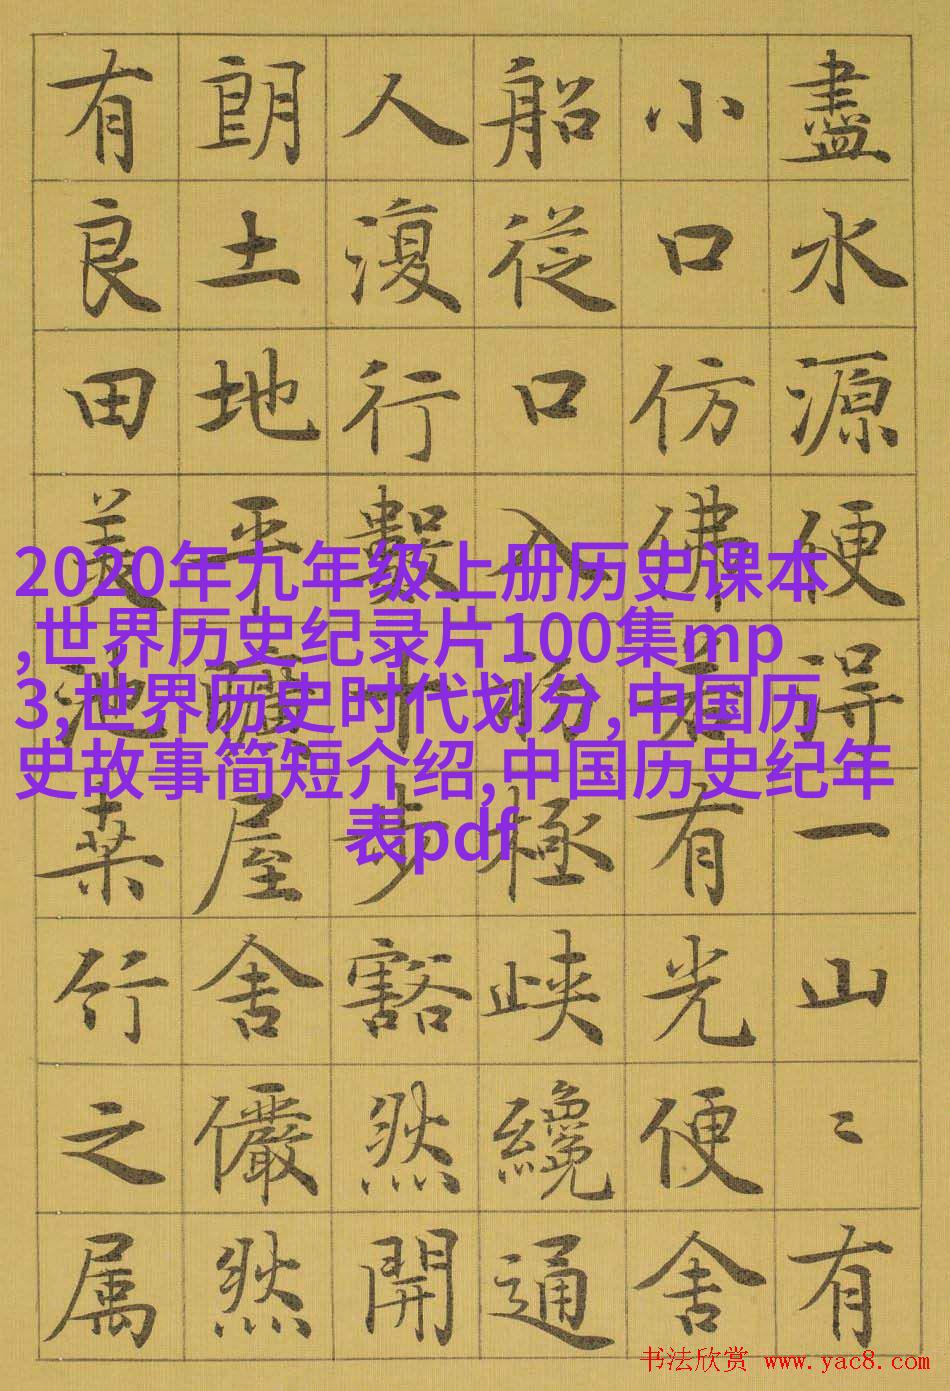 盡水源便得一山〻有
小口仿佛若有光便舍
船從口入初極峽纔通
人復行數十步豁然開
朗土地平曠屋舍儼然
有良田美池桑竹之属
2020年九年级上册历史课本
,世界历史纪录片100集mp
3,世界历史时代划分,中国历
史故事简短介绍,中国历史纪年
表pdf
书法欣赏 www.yac8.com